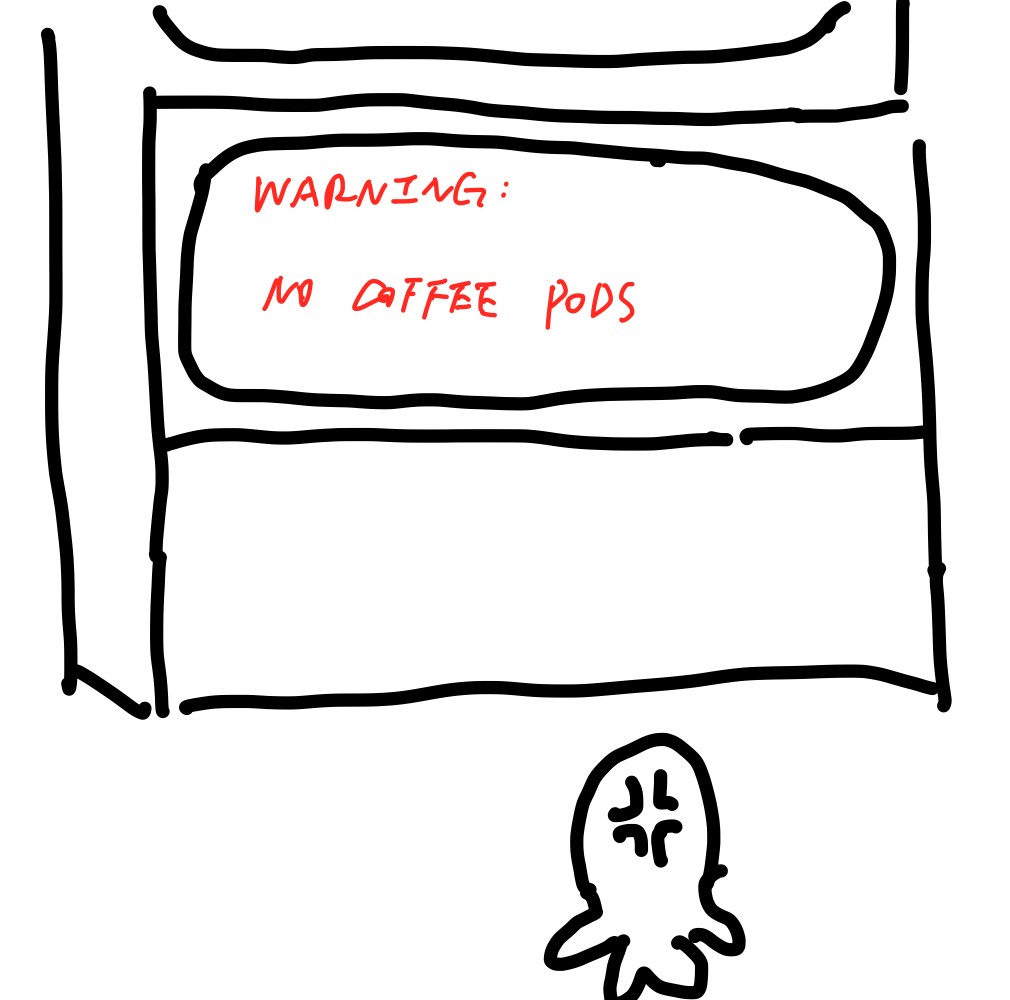 WARNING:
NO COFFEE PODS